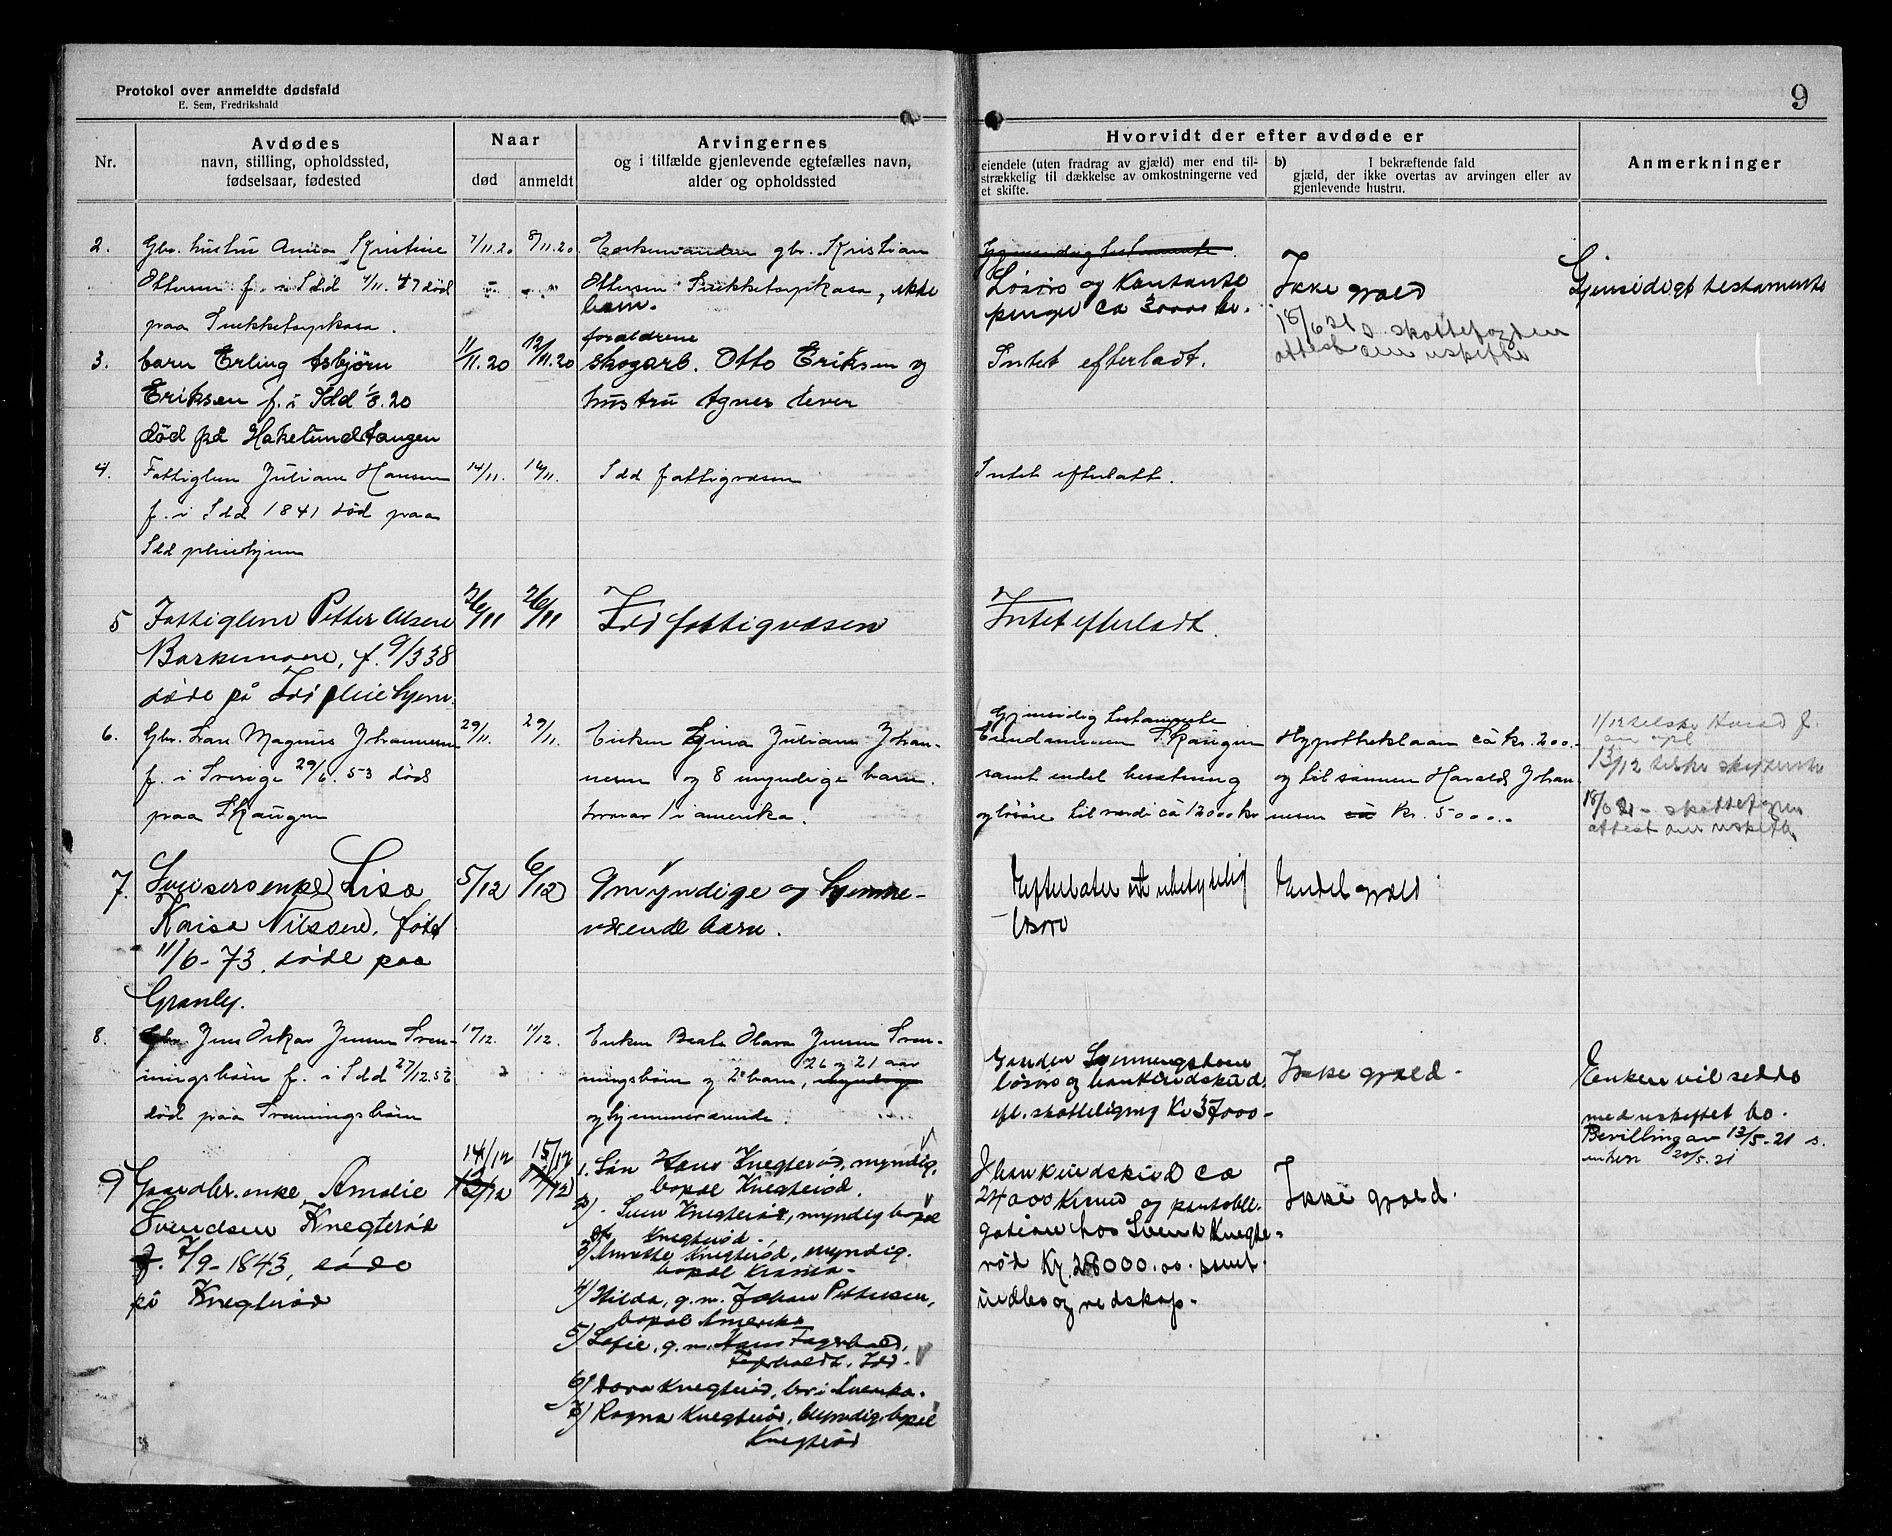 Protokol over anmeldte dødsfald
E. Sem, Fredrikshald
9
Nr.
Avdødes
navn, stilling, opholdssted,
fødselsaar, fødested
Naar
død
anmeldt
Arvingernes
og i tilfælde gjenlevende egtefælles navn,
alder og opholdssted
Hvorvidt der efter avdøde er
eiendele (uten fradrag av gjæld) mer end til-
strækkelig til dækkelse av omkostningerne ved
et skifte.
b) I bekræftende fald
gjæld, der ikke overtas av arvingen eller av
gjenlevende hustru.
Anmerkninger
2. Gbr. hustru Anna Kristine
Ottersen f. i Idd 4/11. 47 død
paa
7/11.20
8/11.20
Enkemanden gbr. Kristian
Ottersen , ikke
barn.
Gjensidig testamente.
Løsøre og Kontante
penger ca 3000 kr.
Ikke gjæld
18/6 21 s. skattefogden
attest om uskifte
Gjensidigt testamente
3. barn Erling Asbjørn
Eriksen f. i Idd 1/8.20
død på Hakelundtangen
11/11.20
12/11.20
forældrene
skogarb. Otto Eriksen og
hustru Agnes lever
Intet efterladt.
4. Fattiglem Juliane Hansen
f. i Idd 1841 død paa
Idd pleiehjem
14/11.
16/11.
Idd fattigvæsen
Intet efterlatt.
5 Fattiglem Petter Olsen
f. 9/3 38
døde på Idd pleiehjem.
26/11
26/11
Idd fattigvæsen
Intet efterladt.
6. Gbr. Lars Magnus Johannesen
f. i Sverige 29/6. 53 død
paa Skaugen
29/11.
29/11.
Enken Gina Juliane Johan-
nesen og 8 myndige barn.
hvorav 1 i amerika.
Gjensidig testamente
Eiendommen Skaugen
samt endel besætning
og løsøre til værdi ca 12000 kr
Hypotheklaan ca kr. 200.-
og til sønnen Harald Johan-
nesen ca kr. 5000.-
attest om uskifte
7. enke Lisa
Kaisa Nilssen, født
11/6-73, døde paa
Granly.
5/12
6/12
9 myndige og hjemme-
værende barn.
Efterlater ubetydelig
løsøre
Endel gjæld
8. Gbr. Jens Oskar Jensen Sven-
ningsbøen f. i Idd 27/12.56
død paa Svenningsbøen
11/12.
Enken Beate Olava Jensen Sven-
26 og 21 aar
ningsbøen og 2 barn, myndige
og hjemmeværende.
Gaarden Svenningsbøen
løsøre og bankindskud.
efl. skatteligning Kr 37000-
Ikke gjæld.
Enken vil sidde
med uskiftet bo.
Bevilling av 13/5-21 s.
enken 20/5.21
9 Gaardbr. enke Amalie
Svendsen Knegterød
f. 7/9-1843, døde
på Knegterød
14/12
13/12
15/12
14/12
1. Søn Hans Knegterød, myndig,
bopæl Knegterød.
2) Knegterød, myndig bopæl
Knegterød.
3) Anette Knegterød, myndig.
bopæl Krania-
4) Hilda, g.m. Johan Pettersen,
bopæl Amerika
5) Sofie, g.m. Hans Fagerholdt,
Fagerholdt. Idd.
6) Dora Knegterød, bor i Amerika.
7) Ragna Knegterød, Umyndig, bopæl
Knegterød
I bankindskud ca
24000 Kroner og pantobli-
gation hos Svend Knegte-
rød Kr. 28000.00. samt
indbo og redskap.
Ikke gjæld.